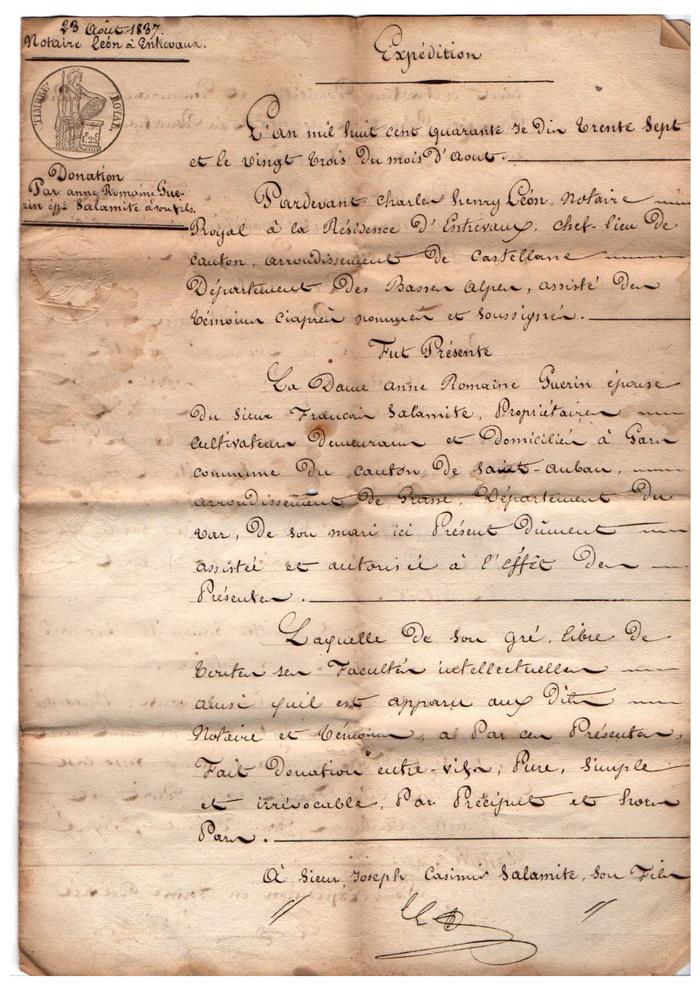 23 Août 1837.
Notaire Léon à Entrevaux.
Expédition
TIMBRE ROYAL
1 F. 25
L'an mil huit cent quarante se dix trente Sept
et le vingt trois du mois d'Aout.
Donation
Par anne Romaine Gue-
rin épse Salamite à son fils.
Pardevant Charles henry Léon, Notaire
Royal à la Résidence d'Entrevaux, chef-lieu de
canton, arrondissement de Castellane
Département des Basses Alpes, assisté des
témoins ciaprès nommés et soussignés.
Fut Présente
La Dame anne Romaine Guerin épouse
du sieur Francois Salamite, Propriétaires
cultivateurs demeurans et domiciliés à Gars
commune du canton de saint-auban,
arrondissement de Grasse, Département du
var, De son mari ici Présent dument
assistée et autorisée à l'effet des
Présentes.
Laquelle de son gré, libre de
toutes ses Facultés intellectuelles
ainsi qu'il est apparu aux dits
Notaire et témoins, a Par ces Présentes,
Fait Donation entre-vifs, Pure, simple
et irrévocable, Par Préciput et hors
Part.
À sieur Joseph Casimir Salamite, son Fils